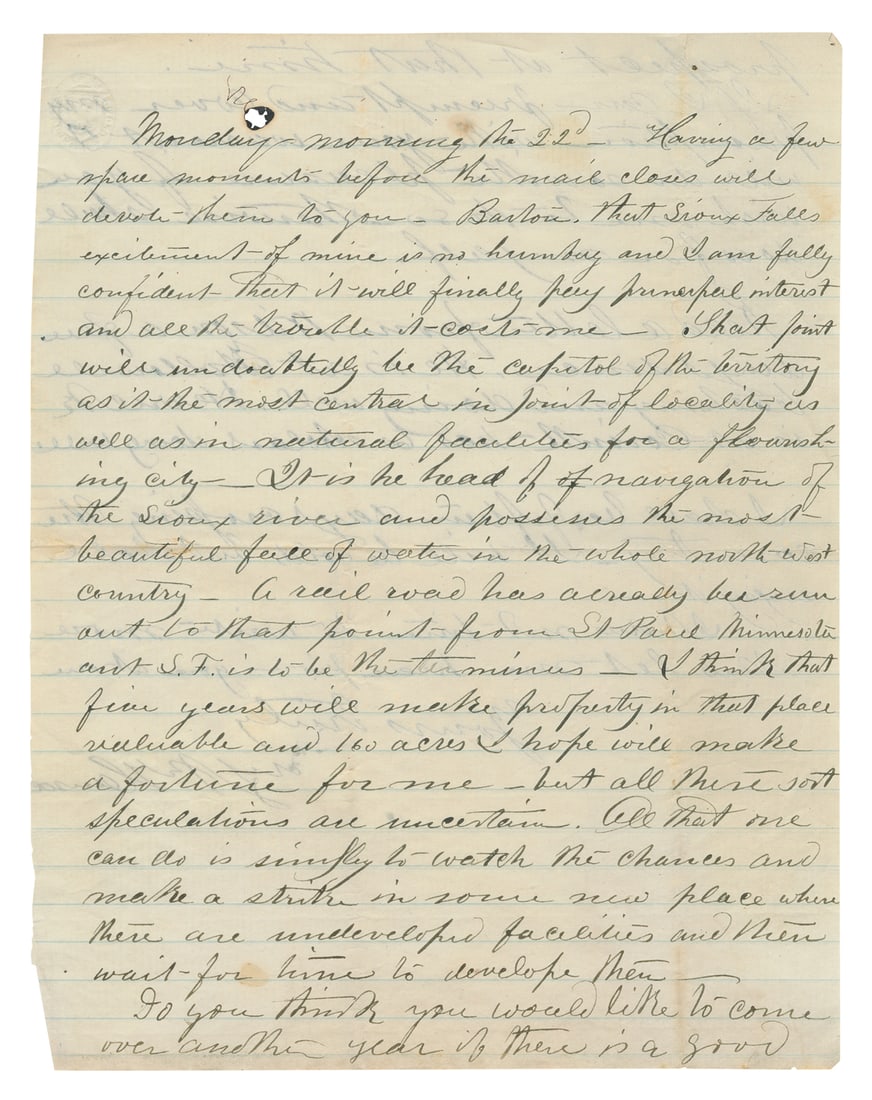 Monday morning the 22d – Having a few
spare moments before the mail closes will
devote them to you – Barton, that Sioux Falls
excitement of mine is no humbug and I am fully
confident that it will finally pay principal interest
and all the trouble it costs me – That point
will undoubtedly be the capitol of the territory
as it the most central in point of locality as
well as in natural facilities for a flourish-
ing city – It is he head of of navigation of
the Sioux river and possesses the most
beautiful fall of water in the whole north-west
country – A rail road has already bee run
out to that point from St Paul Minnesota
ant S.F. is to be the terminus – I think that
five years will make property in that place
valuable and 160 acres I hope will make
a fortune for me – but all these sort
speculations are uncertain. All that one
can do is simply to watch the chances and
make a strike in some new place where
there are undeveloped facilities and then
wait for time to develope them –
Do you think you would like to come
over another year if there is a good